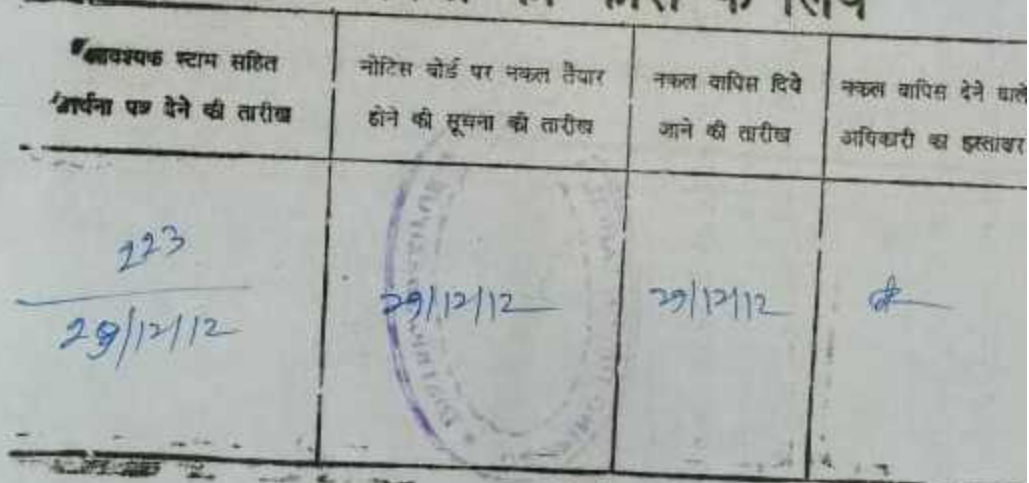 के लिये
आवश्यक स्टाम सहित
प्रार्थना पत्र देने की तारीख
नोटिस बोर्ड पर नकल तैयार
होने की सूचना की तारीख
नकल वापिस दिये
जाने की तारीख
नकल वापिस देने वाले
अधिकारी का हस्ताक्षर
223
29/12/12
29/12/12
29/12/12